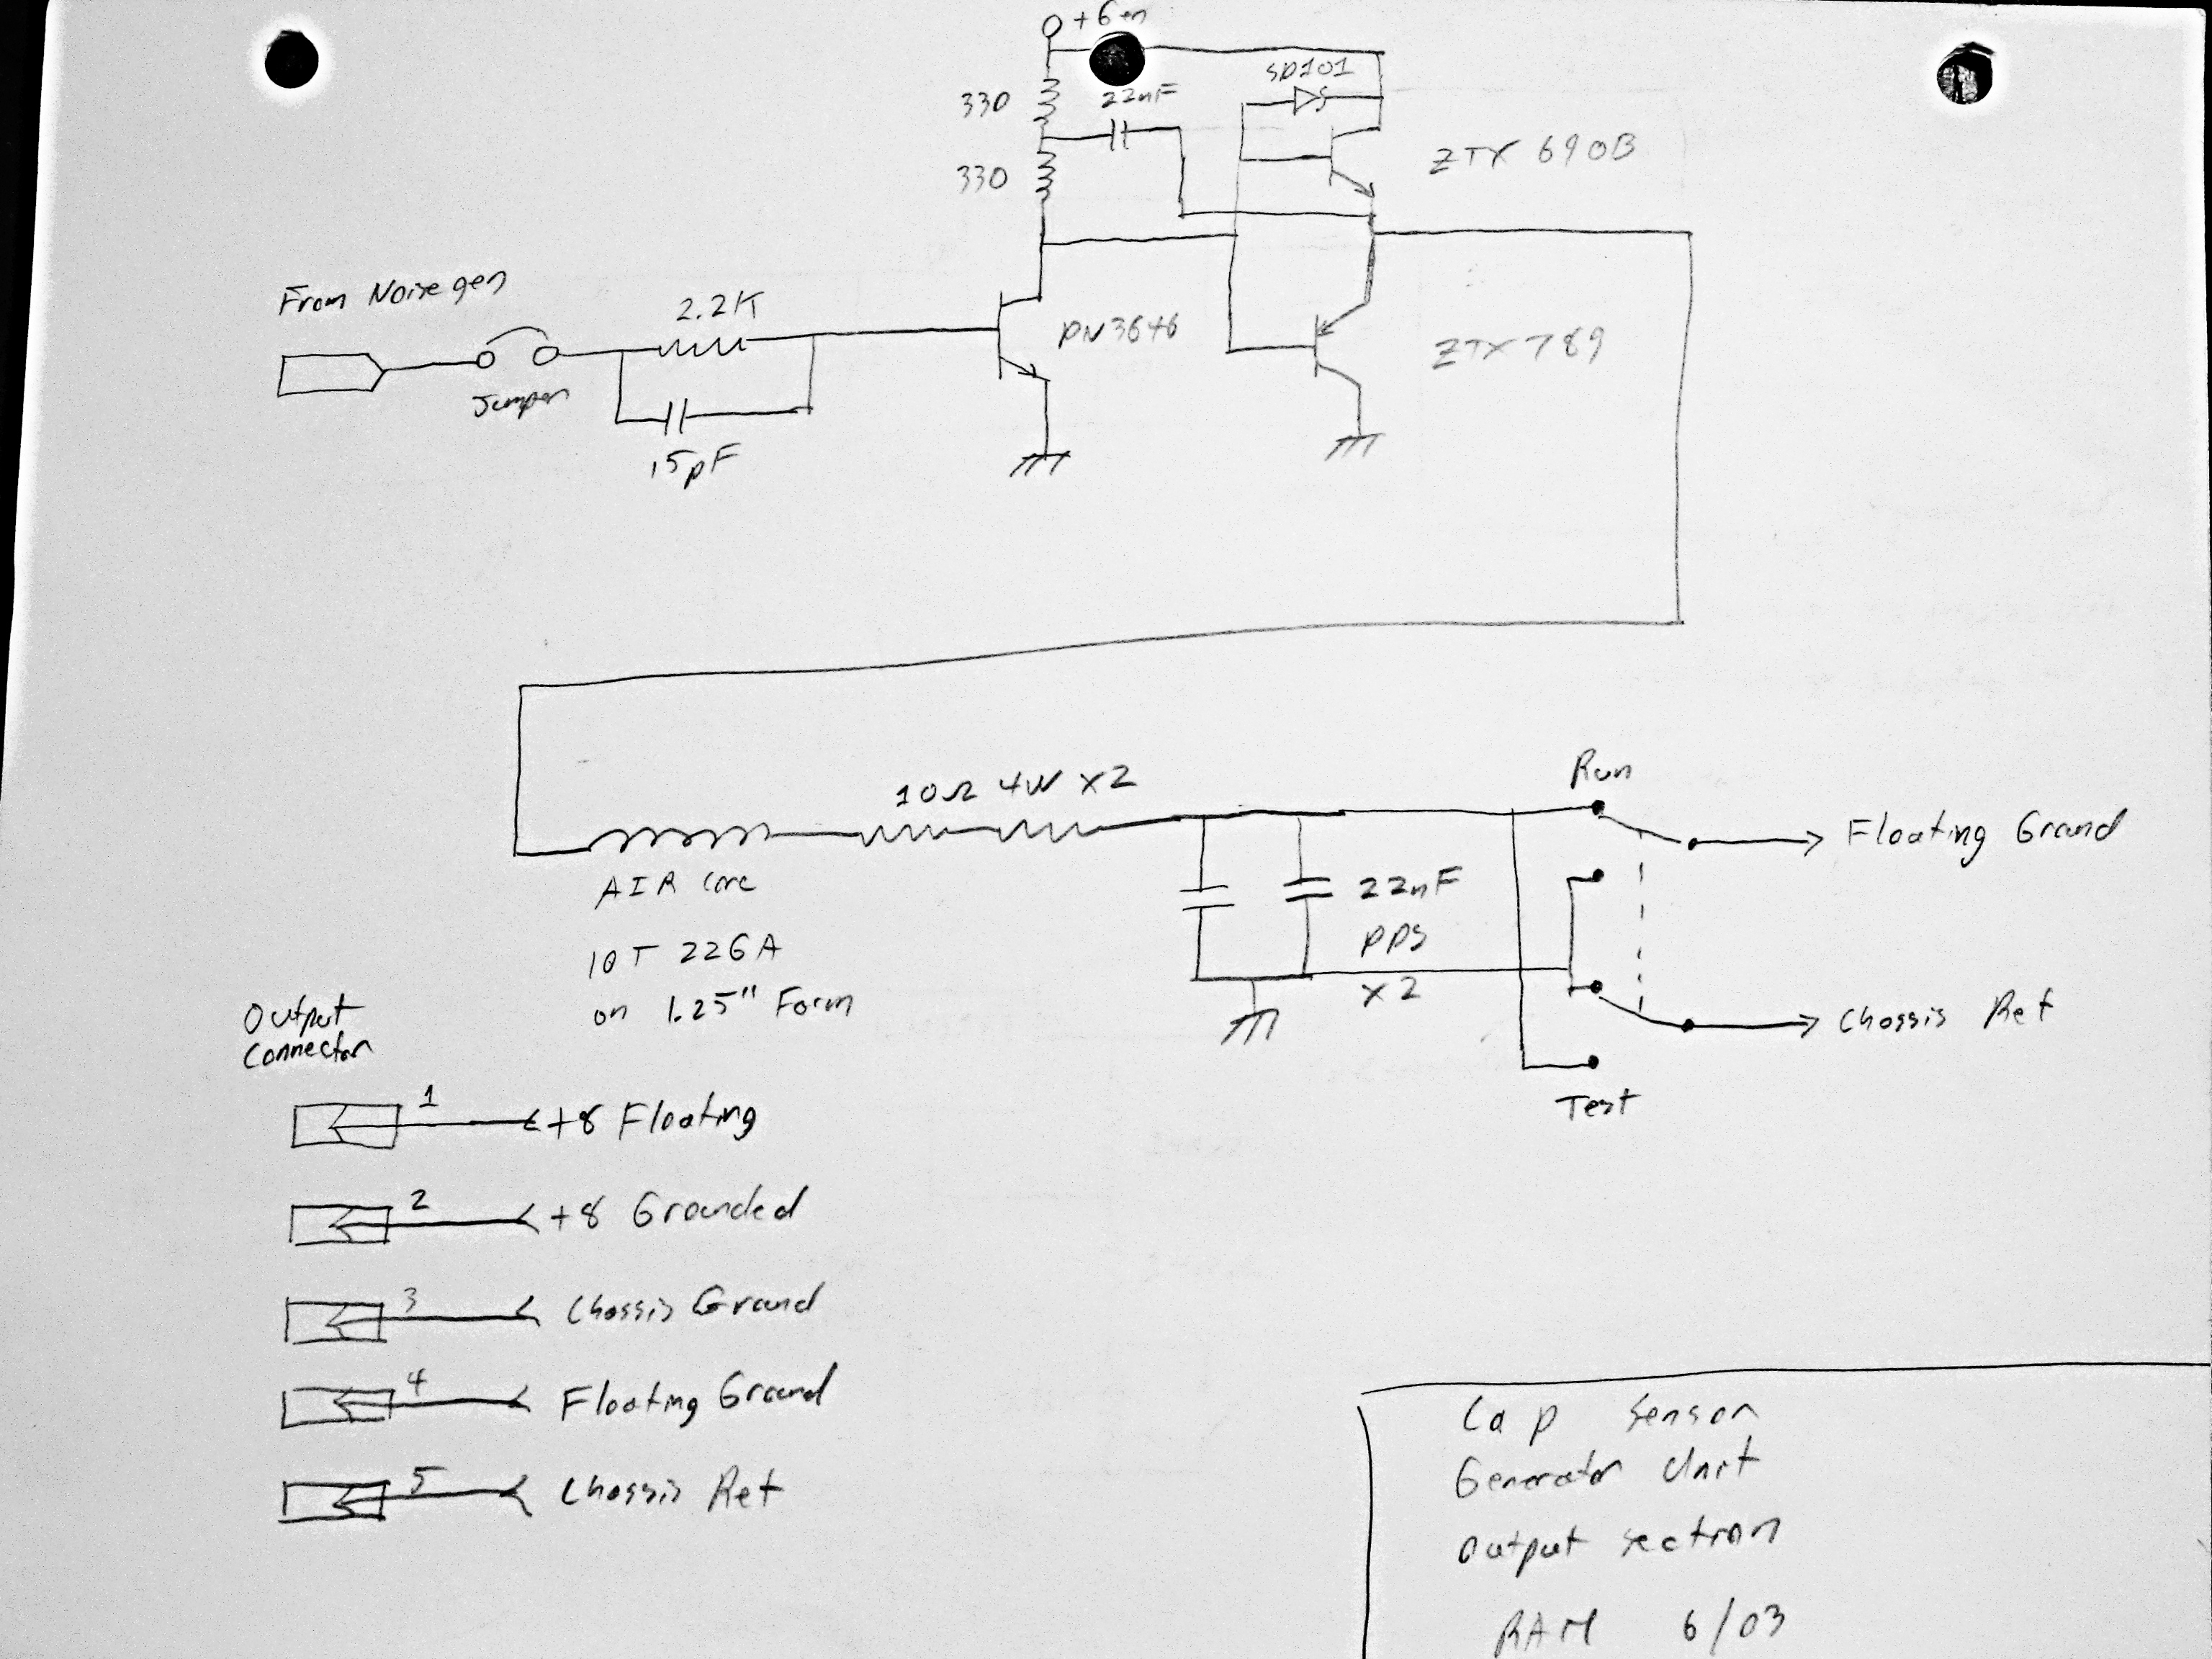 +6
SD101
330
22nF
330
ZTX 690B
From Noise gen
2.2K
PN3646
ZTX 789
Jumper
15pF
Run
10Ω 4W x2
Floating Ground
AIR Core
22nF
10T 22GA
PPS
on 1.25" Form
x2
Output
Connector
Chassis Ret
1
+8 Floating
Test
2
+8 Grounded
3
Chassis Ground
4
Floating Ground
5
Chassis Ret
Cap Sensor
Generator Unit
Output section
RAM 6/03